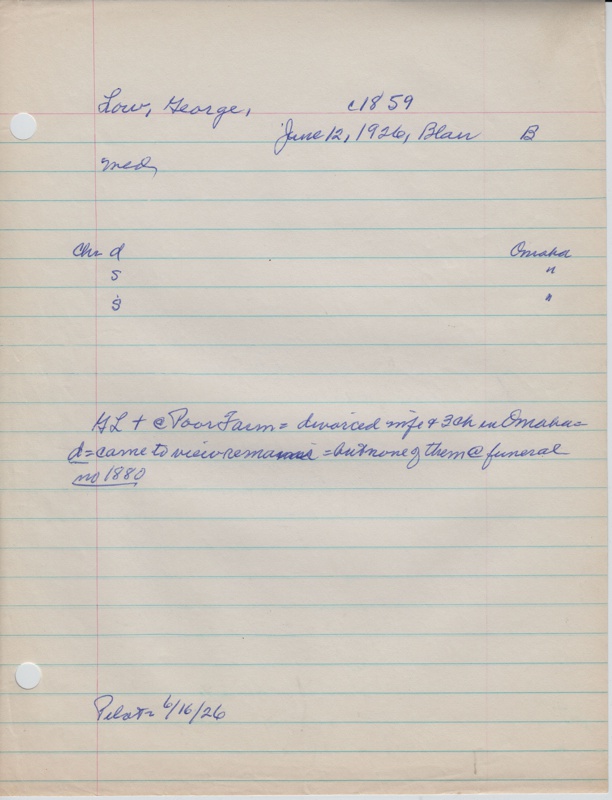 Low, George, c1859
June 12, 1926, Blair B
med,
Ch= d Omaha
s "
s "
GL + @ Poor Farm = divorced wife & 3 ch in Omaha =
d = came to view remains = but none of them @ funeral
no 1880
Pilot = 6/16/26